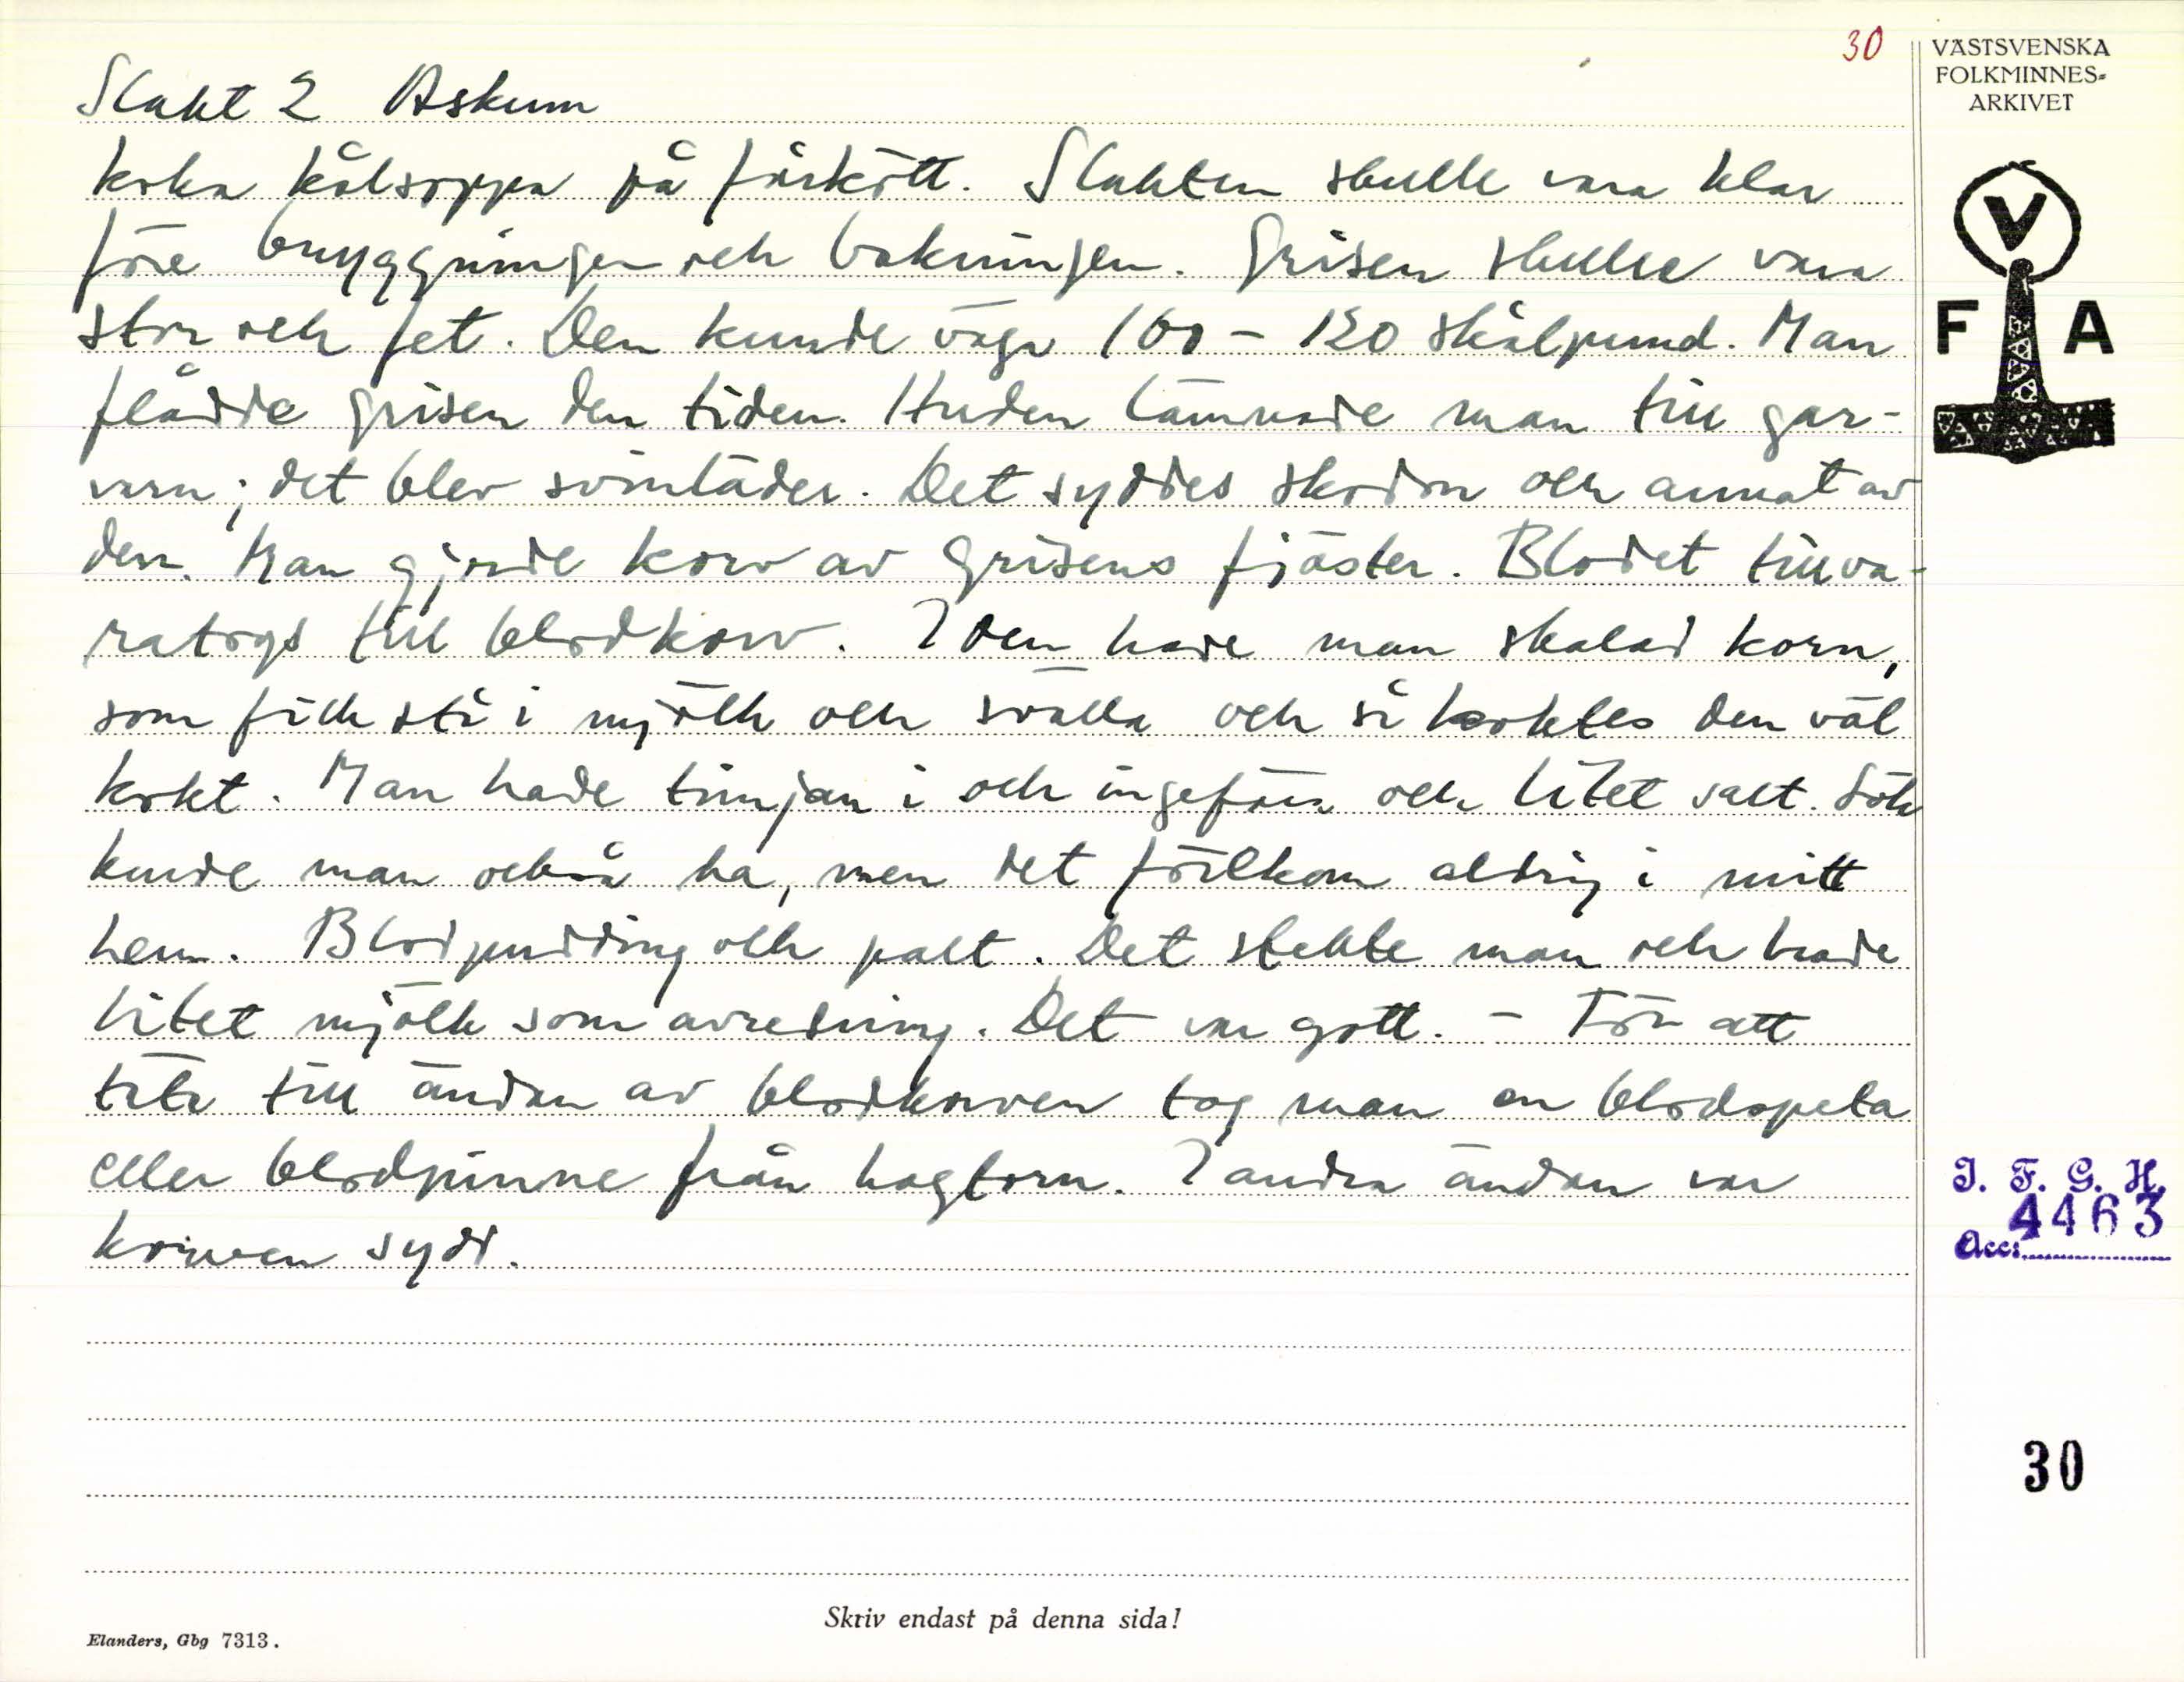 30
VÄSTSVENSKA
FOLKMINNES-
ARKIVET
Slakt 2 Askum
koka kålsoppa på fårkött. Slakten skulle vara klar
före bryggningen och bakningen. Grisen skulle vara
stor och fet. Den kunde väga 160 - 180 skålpund. Man
flådde grisen den tiden. Huden lämnade man till gar-
varn; det blev svinläder. Det syddes skodon och annat av
den. Man gjorde korv av grisens fjäster. Blodet tillva-
ratogs till blodkorv. I den hade man skalad korn,
som fick stå i mjölk och svälla och så koktes den väl
kokt. Man hade timjan i och ingefära och litet salt. Lök
kunde man också ha, men det förekom aldrig i mitt
hem. Blodpudding och palt. Det stekte man och hade
litet mjölk som avredning. Det var gott. - För att
täta till ändan av blodkorven tog man en blodspeta
eller blodpinne från hagtorn. I andra ändan var
korven sydd.
V
F A
I. F. G. H.
4463
Acc:
30
Skriv endast på denna sida!
Elanders, Gbg 7313.